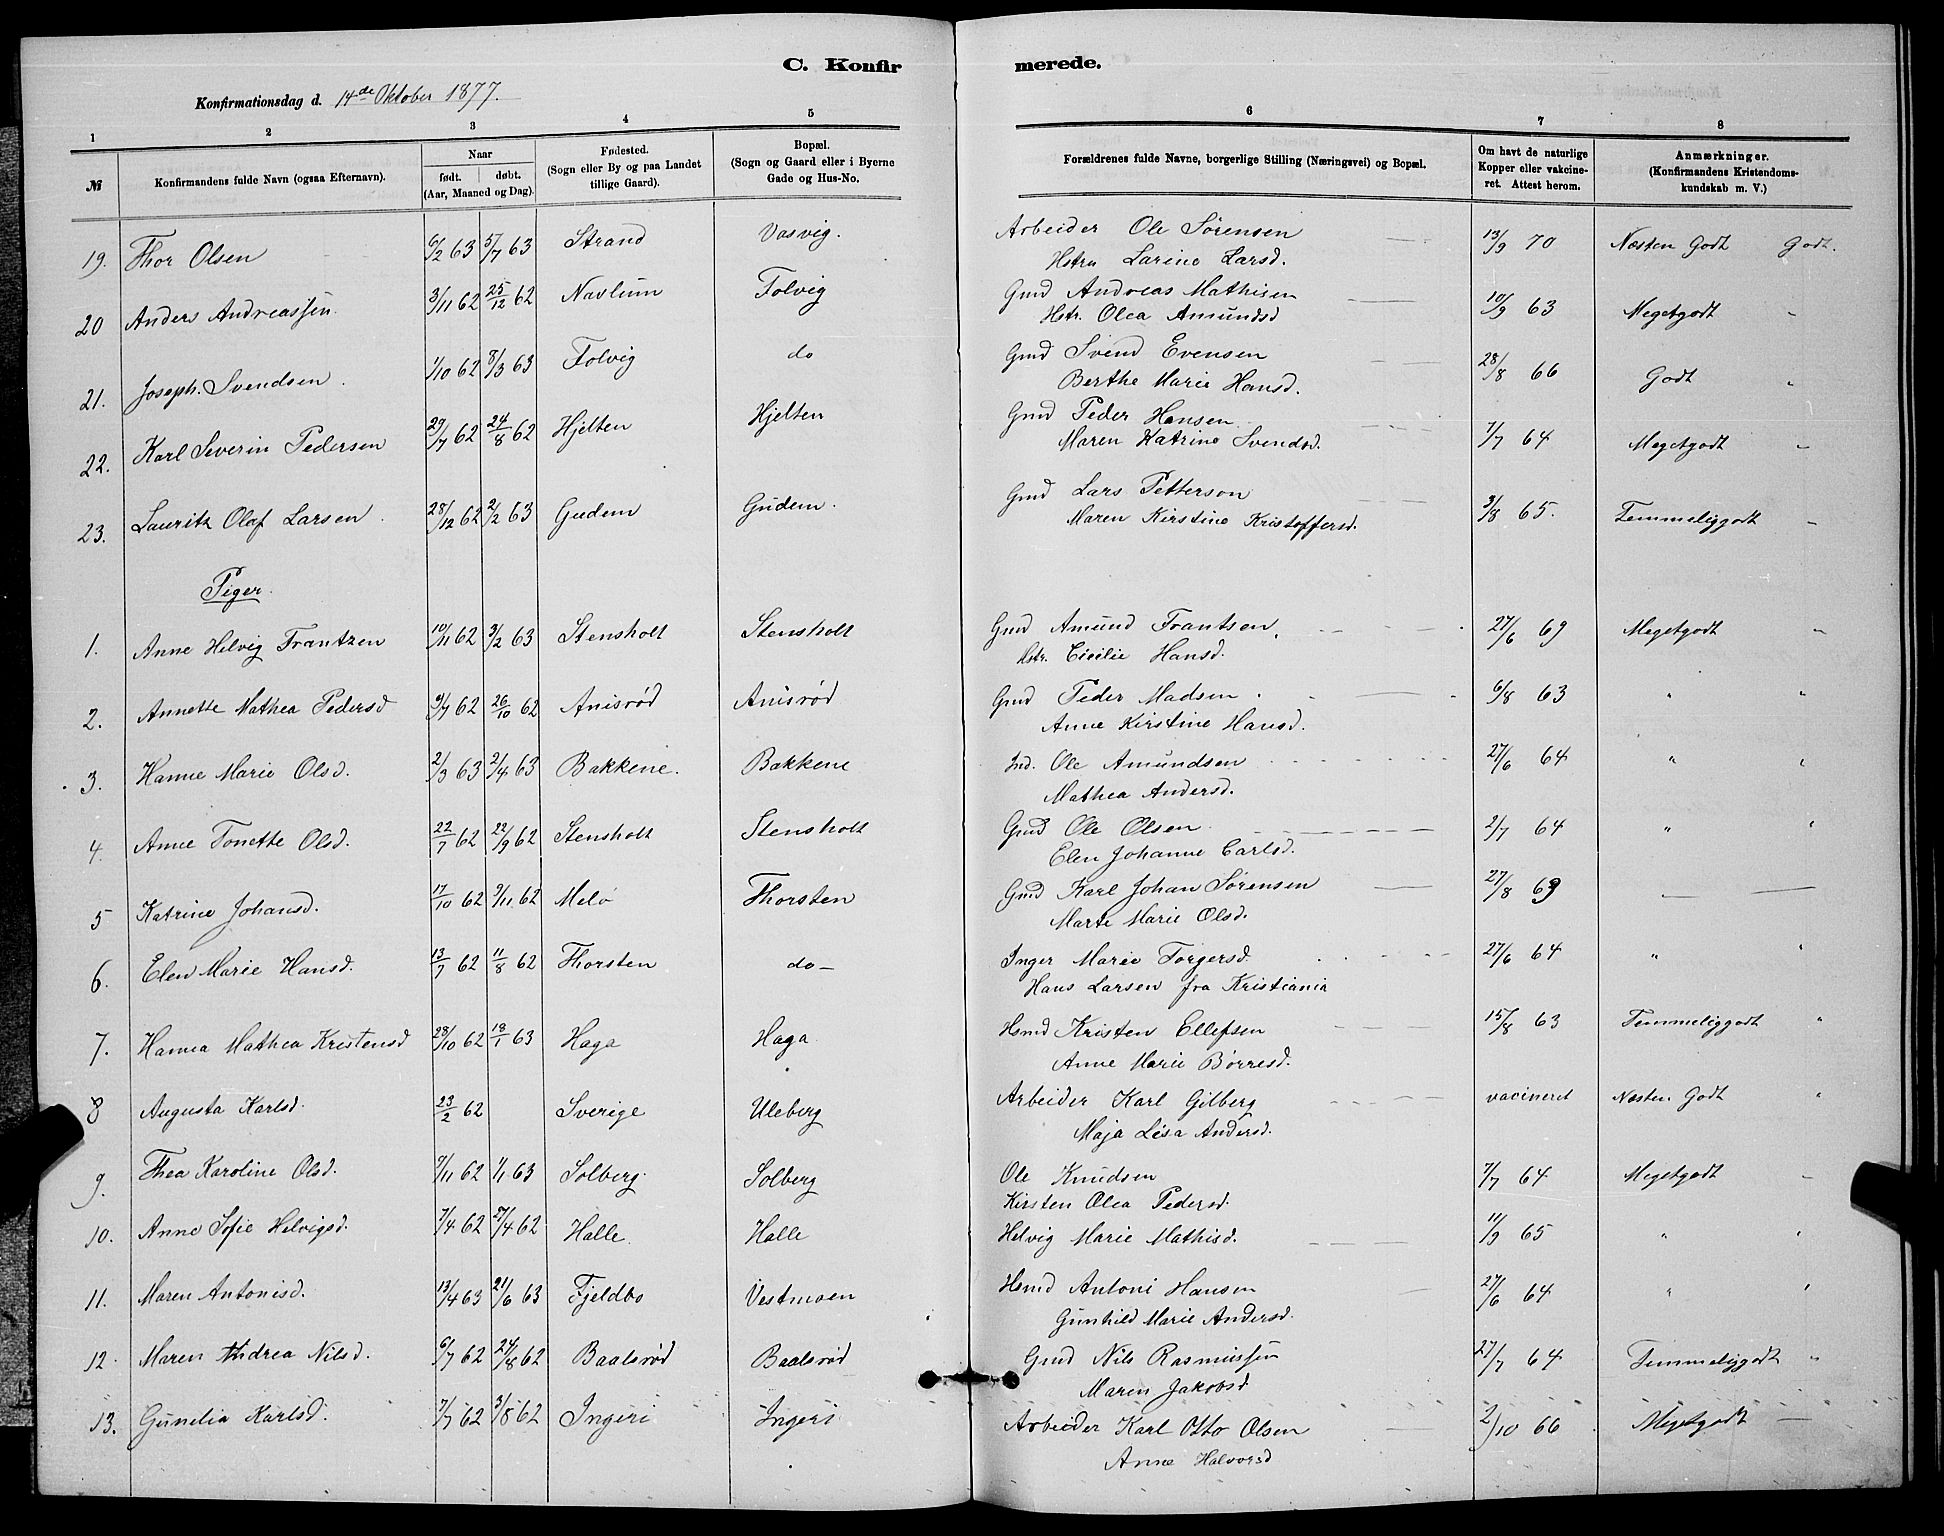 C. Konfirmerede.
Konfirmationsdag d. 14de Oktober 1877.
1 2 3 4 5 6 7 8
№ | Konfirmandens fulde Navn (ogsaa Efternavn). | Naar født. døbt. (Aar, Maaned og Dag). | Fødested. (Sogn eller By og paa Landet tillige Gaard). | Bopæl. (Sogn og Gaard eller i Byerne Gade og Hus-No. | Forældrenes fulde Navne, borgerlige Stilling (Næringsvei) og Bopæl. | Om havt de naturlige Kopper eller vakcineret. Attest herom. | Anmærkninger. (Konfirmandens Kristendomskundskab m. V.)
19. Thor Olsen 6/2 63 5/7 63 Strand Vasvig. Arbeider Ole Sørensen 13/9 70 Næsten Godt Godt.
Hstru Larine Larsd.
20 Anders Andreassen 3/11 62 25/12 62 Navlum Tolvig Gmd Andreas Mathisen 10/9 63 Megetgodt "
Hstr. Olea Amundsd
21. Joseph. Svendsen. 1/10 62 8/3 63 Tolvig do Gmd Svend Evensen 28/8 66 Godt "
Berthe Marie Hansd.
22. Karl Severin Pedersen 29/7 62 24/8 62 Hjelten Hjelten Gmd Peder Hansen 7/7 64 Megetgodt "
Maren Katrine Svendsd.
23. Lauritz Olaf Larsen 28/12 62 2/2 63 Gudem Gudem. Gmd Lars Petterson 3/8 65. Temmeliggodt "
Maren Kirstine Kristoffersd.
Piger.
1. Anne Helvig Frantzen 10/11 62 3/2 63 Stensholt Stensholt Gmd Amund Frantsen 27/6 69 Megetgodt "
Hstr. Cicilie Hansd.
2. Annette Mathea Pedersd 62 26/10 62 Anisrød Anisrød Gmd Peder Madsen 6/8 63 " "
Anne Kirstine Hansd.
3. Hanne Marie Olsd. 2/3 63 2/4 63 Bakkene. Bakkene Ind. Ole Amundsen 27/6 64 " "
Mathea Andersd.
4. Anne Tonette Olsd. 22/7 62 22/9 62 Stensholt Stensholt Gmd Ole Olsen 2/7 64 " "
Elen Johanne Carlsd.
5 Katrine Johansd. 17/10 62 9/11 62 Melø Thorsten Gmd Karl Johan Sørensen 27/8 69 — —
Marte Marie Olsd.
6. Elen Marie Hansd. 13/7 62 11/8 62 Thorsten do — Inger Marie Torgersd. 27/6 64 " "
Hans Larsen fra Kristiania
7. Hanna Mathea Kristensd 28/10 62 18/1 63 Haga Haga Hsmd Kristen Ellefsen 15/8 63 Temmeliggodt "
Anne Marie Børresd.
8 Augusta Karlsd. 23/2 62 Sverige Uleberg Arbeider Karl Gilberg vacineret Næsten Godt "
Maja Lisa Andersd.
9. Thea Karoline Olsd. 9/11 62 1/1 63 Solberg. Solberg Ole Knudsen 7/7 64 Megetgodt "
Kirsten Olea Pedersd.
10. Anne Sofie Helvigsd. 7/4 62 27/4 62 Halle. Halle Helvig Marie Mathisd. 11/9 65 " "
11. Maren Antonisd. 13/4 63 21/6 63 Fjeldbo Vestmoen Hsmd Antoni Hansen 27/6 64 " "
Gunhild Marie Andersd.
12. Maren Andrea Nilsd. 6/7 62 24/8 62 Baalsrød Baalsrød Gmd Nils Rasmussen 27/7 64 Temmeliggodt "
Maren Jakobsd.
13. Gunelia Karlsd. 7/7 62 3/8 62 Ingeri Ingeri Arbeider Karl Otto Olsen 2/10 66 Megetgodt —
Anne Halvorsd